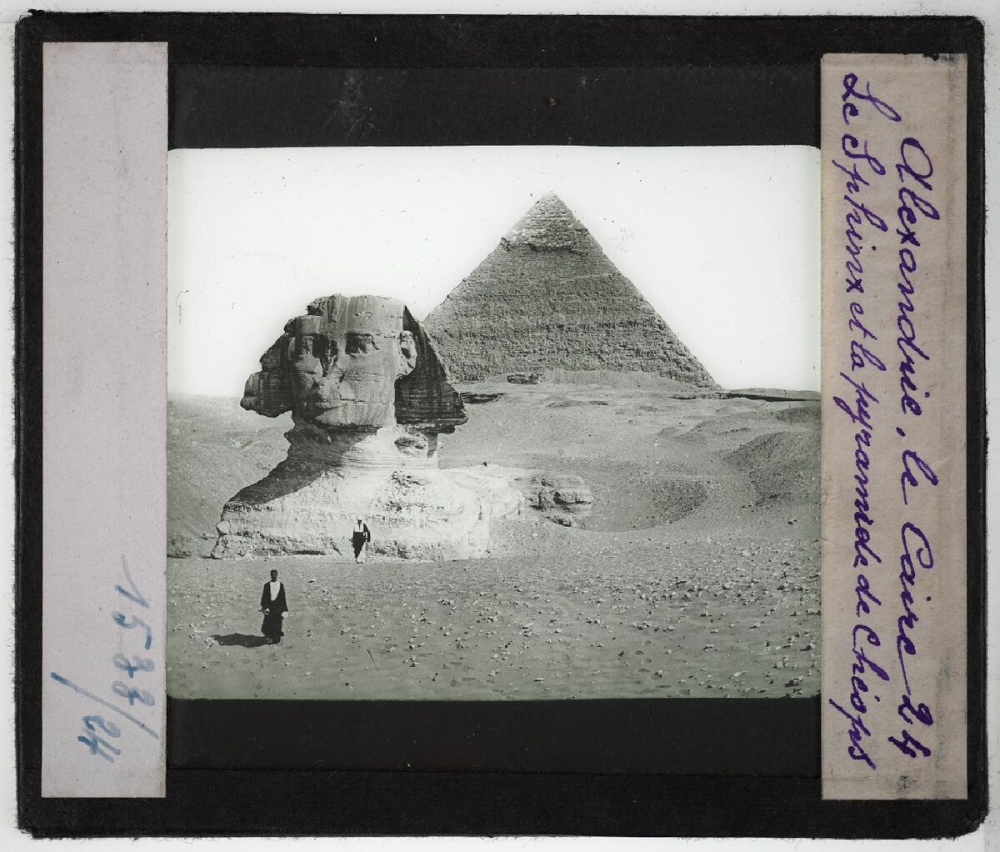 Alexandrie, le Caire 24
Le Sphinx et la pyramide de Chéops
1533/24